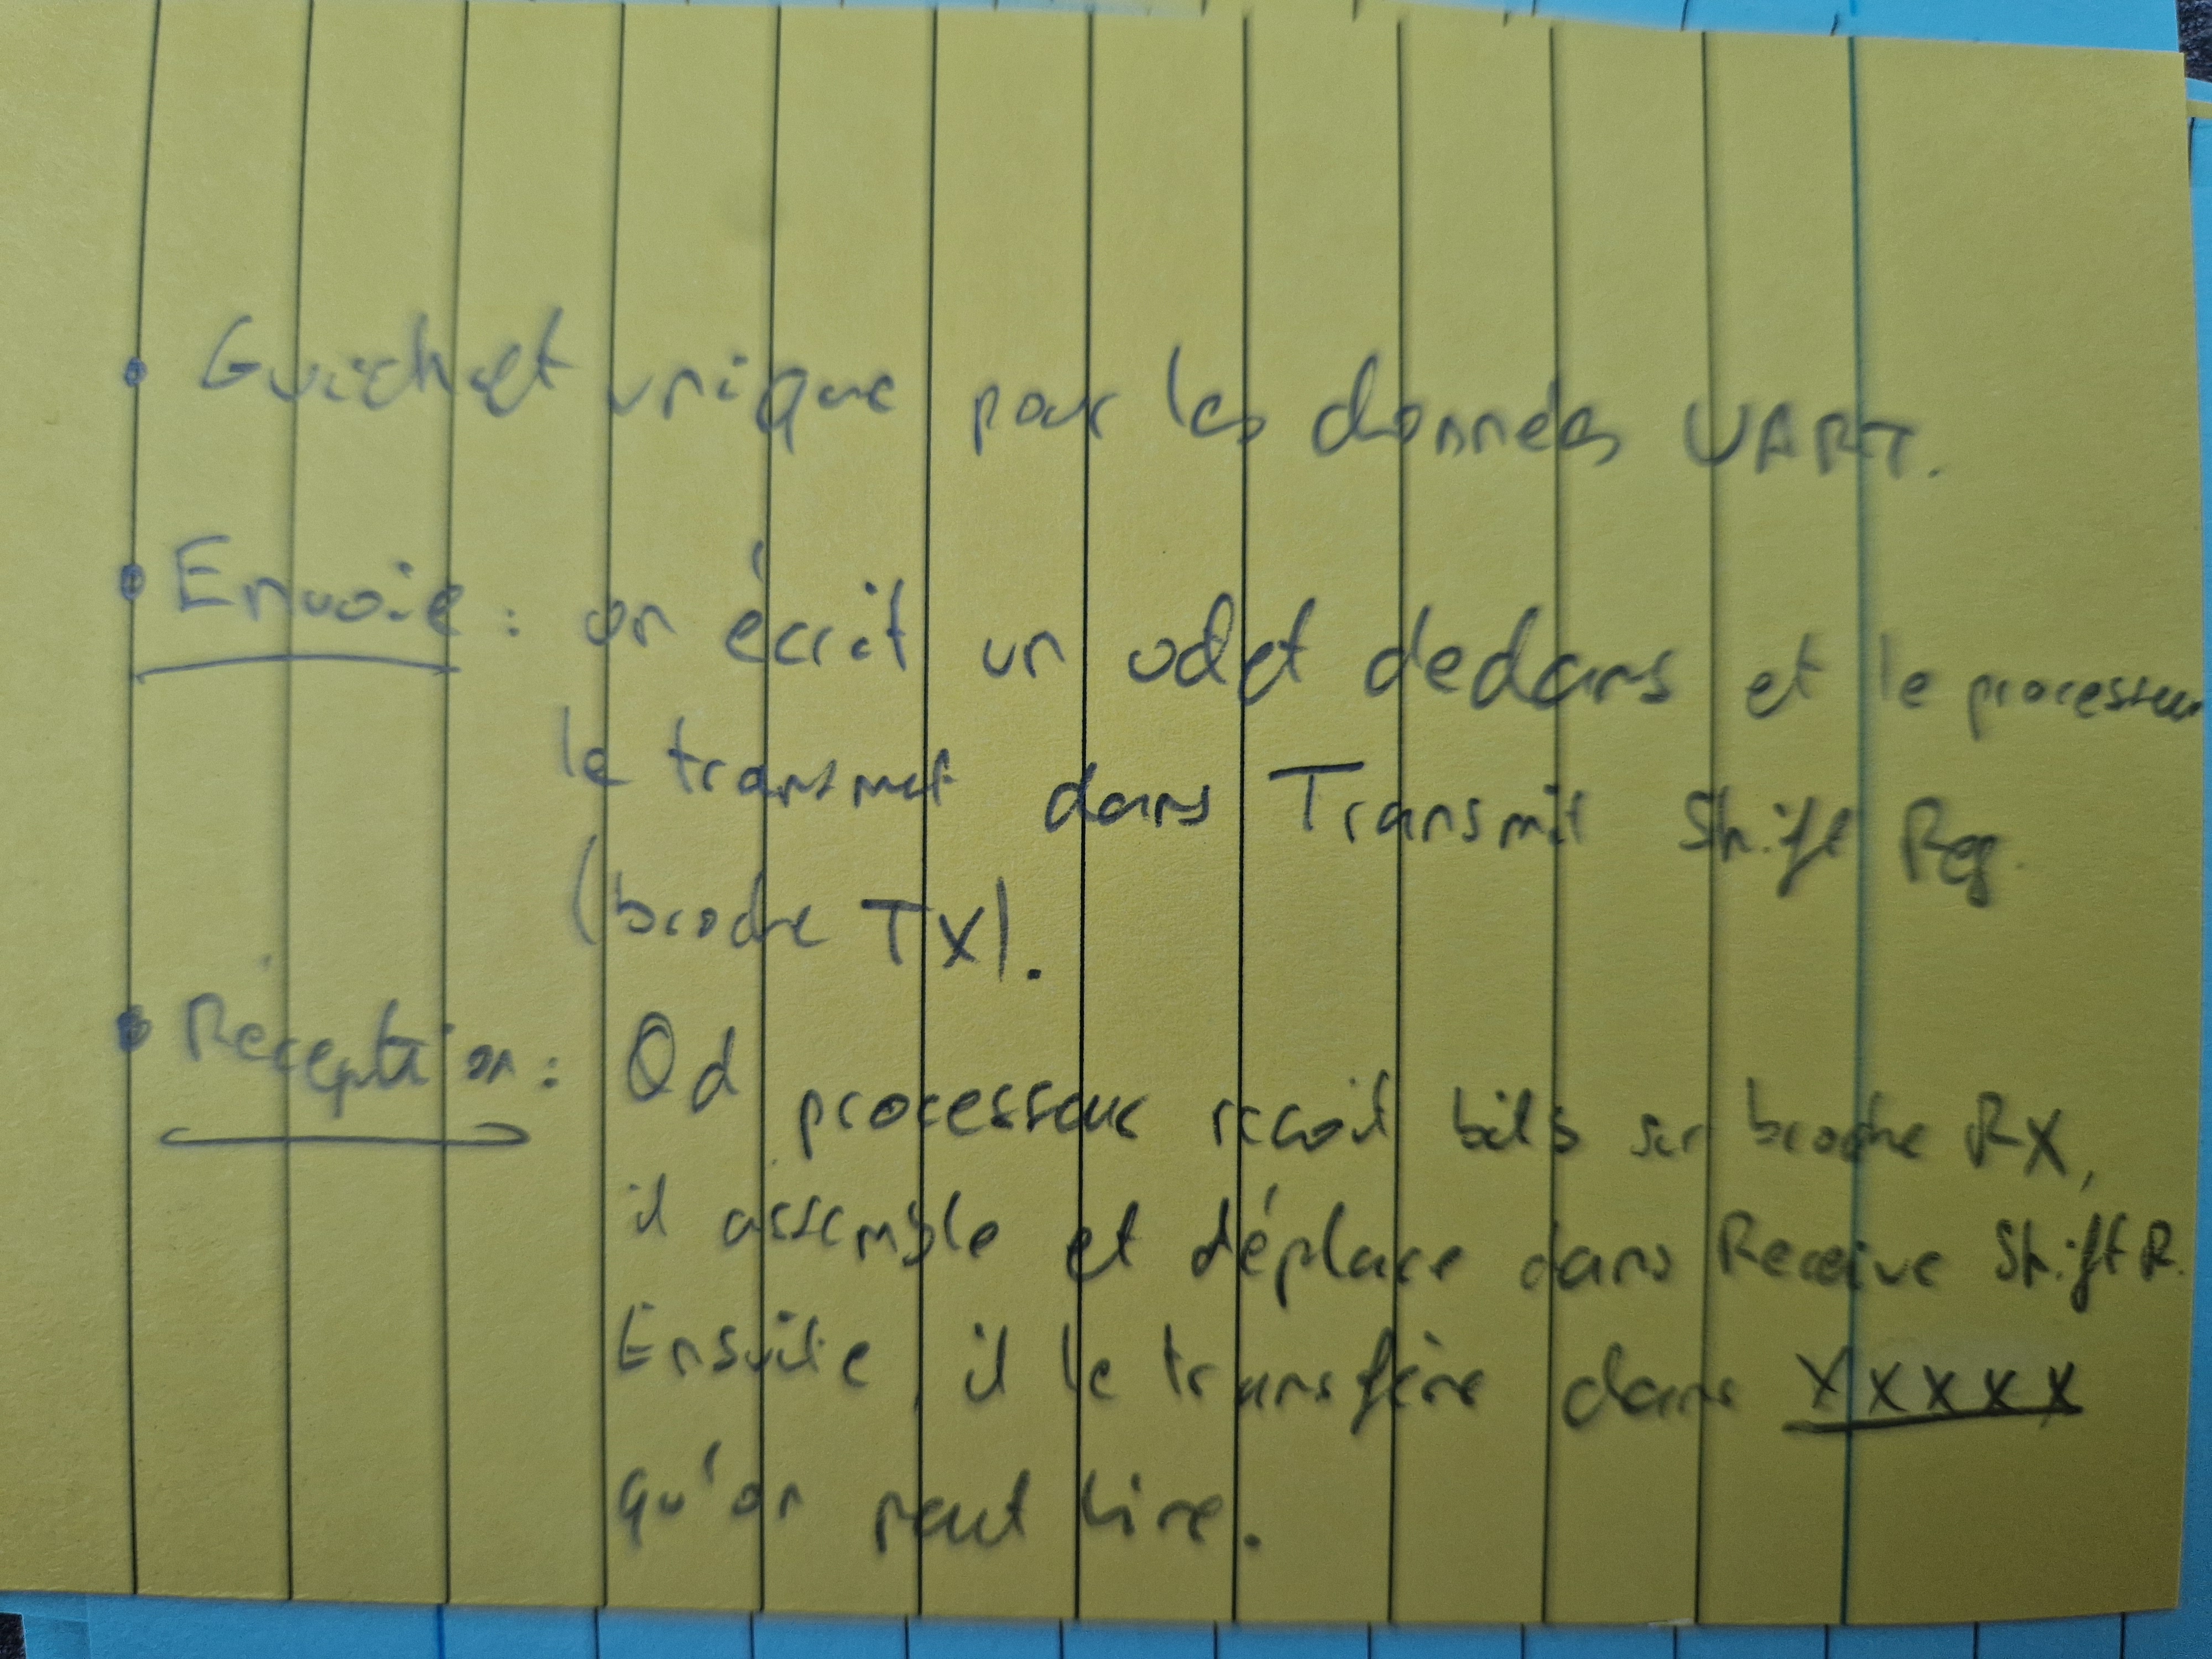 • Guichet unique pour les données UART.
• Envoie : on écrit un odet dedans et le processeur
le transmet dans Transmit Shift Reg.
(broche TX).
• Réception : Qd processeur reçoit bits sur broche RX,
il assemble et déplace dans Receive Shift R.
Ensuite, il le transfère dans XXXX
qu'on peut lire.